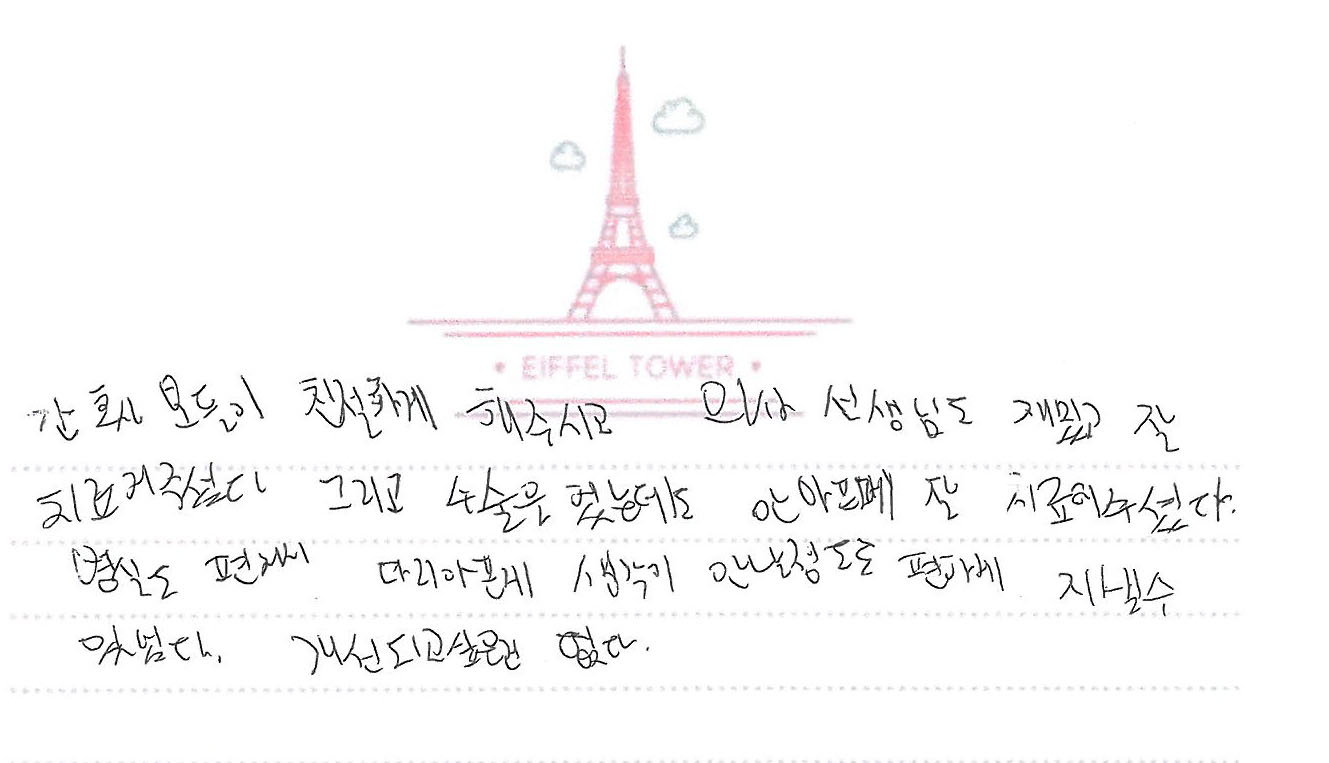 • EIFFEL TOWER •
간호사 모든이 친절하게 해주시고 의사 선생님도 재밌고 잘
치료해주셨다 그리고 수술은 했는데도 안아프게 잘 치료해주셨다.
병실도 편해서 다리아픈게 생각이 안날정도로 편하게 지낼수
있었다. 개선되고싶은건 없다.